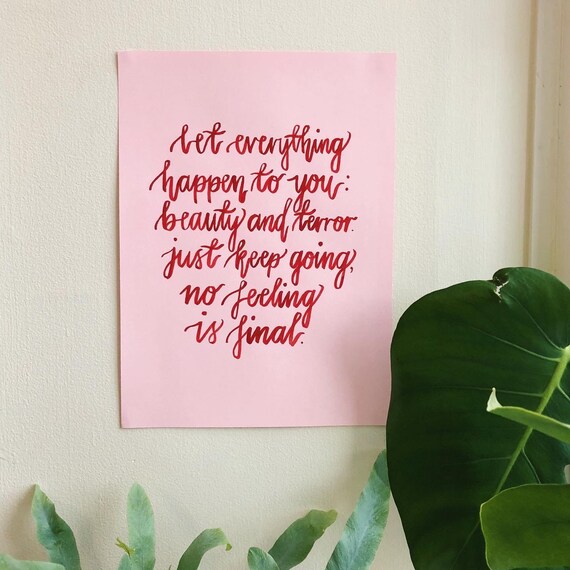 let everything
happen to you:
beauty and terror.
just keep going,
no feeling
is final.